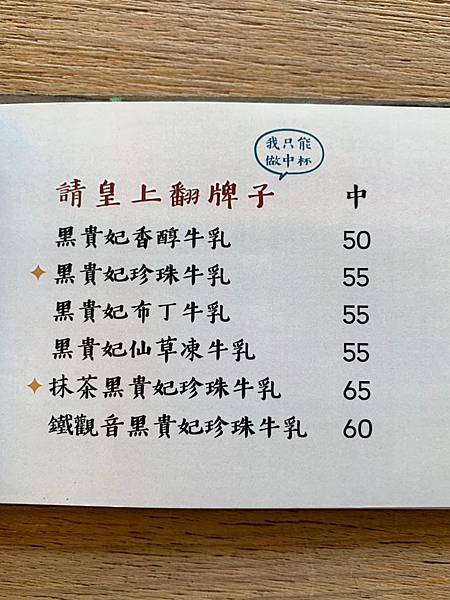 我只能
做中杯
請皇上翻牌子 中
黑貴妃香醇牛乳 50
黑貴妃珍珠牛乳 55
黑貴妃布丁牛乳 55
黑貴妃仙草凍牛乳 55
抹茶黑貴妃珍珠牛乳 65
鐵觀音黑貴妃珍珠牛乳 60